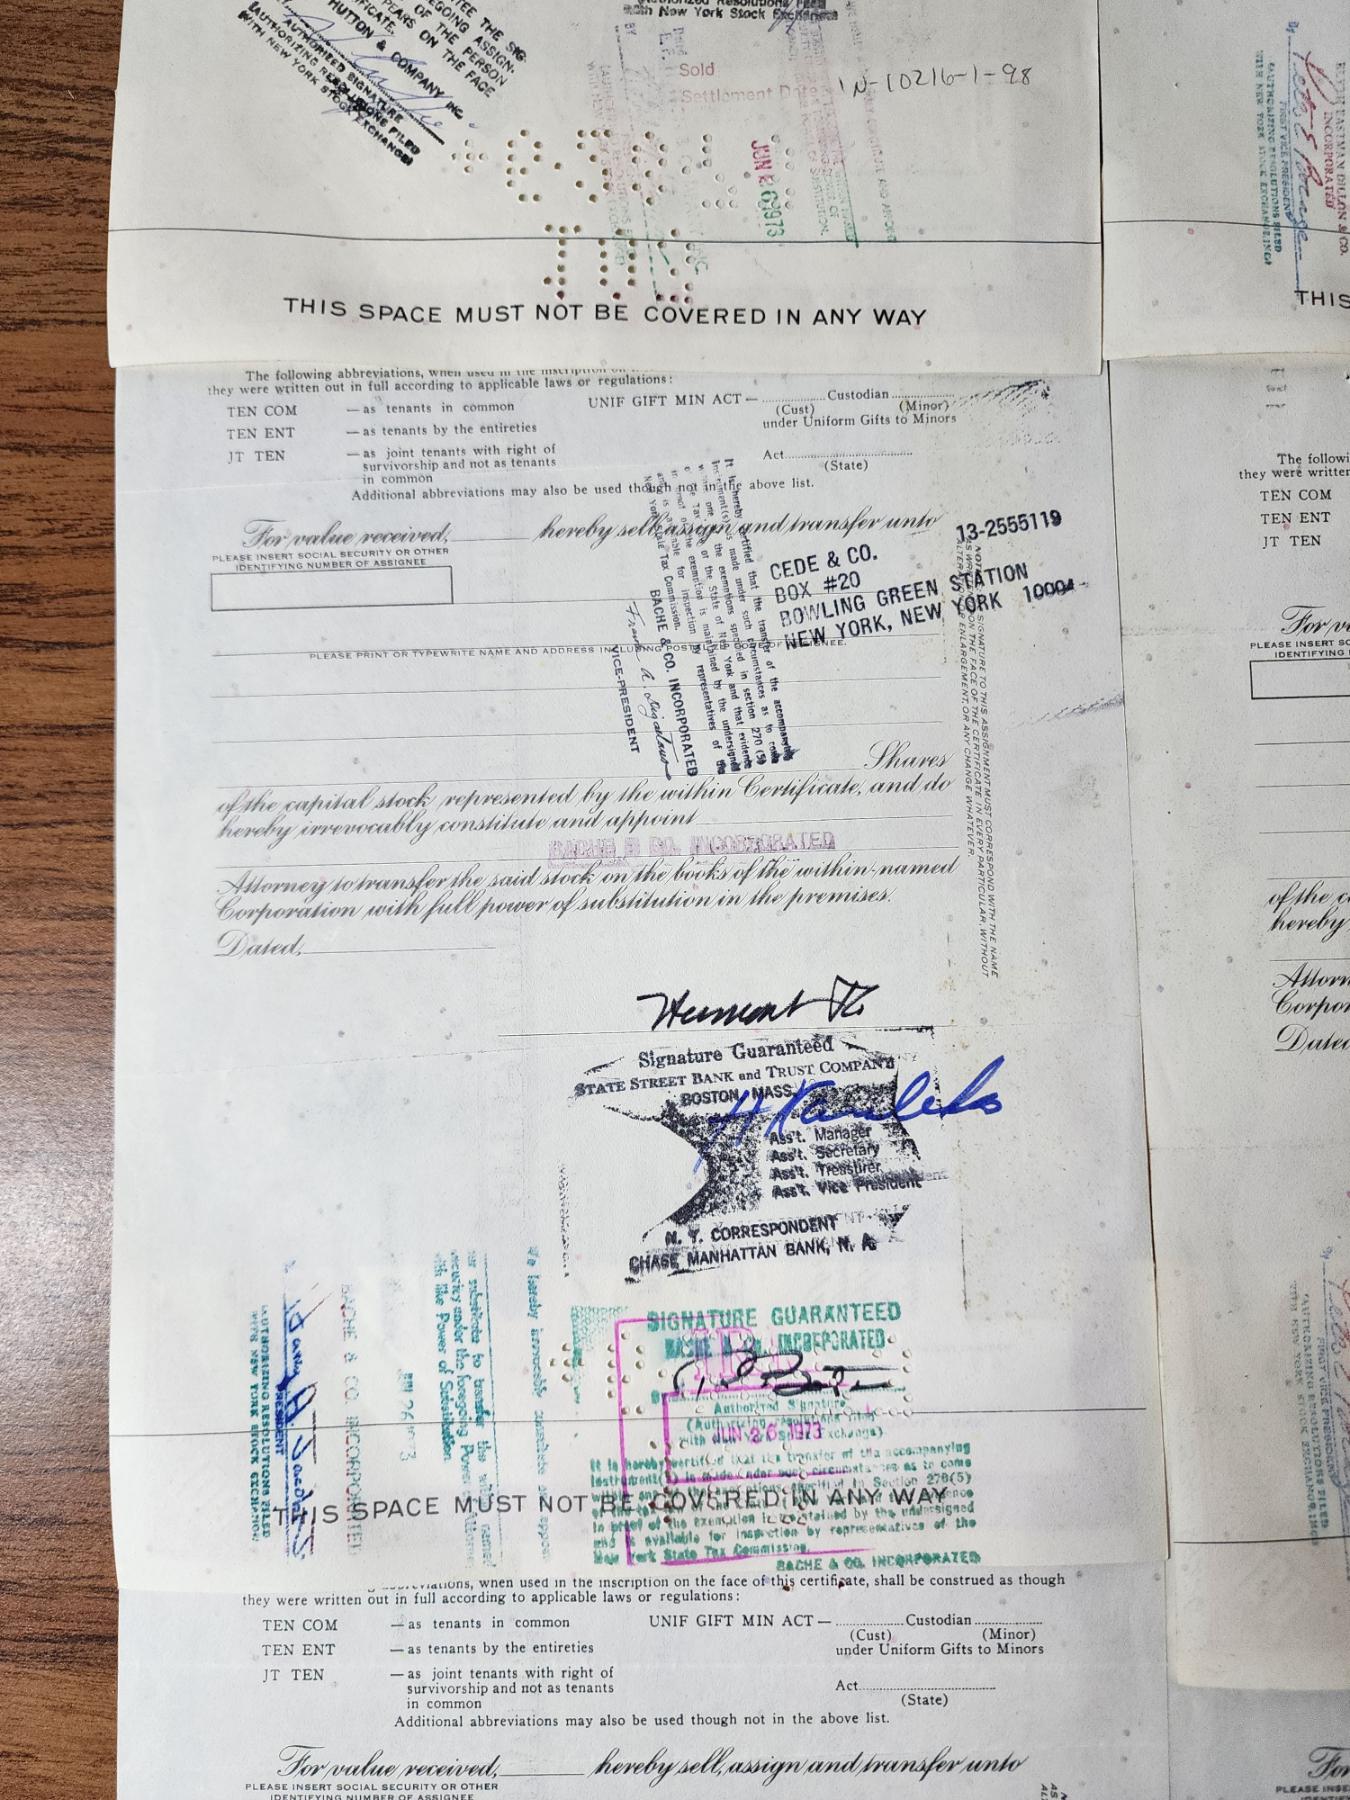 TEE THE SIG-
EGOING ASSIGN-
PEARS ON THE FACE
OF THE PERSON
HUTTON & COMPANY INC.
AUTHORIZED SIGNATURE
(AUTHORIZING RESOLUTIONS FILED
WITH NEW YORK STOCK EXCHANGE)
With New York Stock Exchange
Sold
Settlement Date
IN-10216-1-98
JUN 26 1973
THIS SPACE MUST NOT BE COVERED IN ANY WAY
EASTMAN DILLON &
INCORPORATED
FIRST VICE PRESIDENT
(AUTHORIZING RESOLUTIONS FILED
WITH NEW YORK STOCK EXCHANGE)
THIS
The following abbreviations, when used in the inscription on
they were written out in full according to applicable laws or regulations:
TEN COM —as tenants in common UNIF GIFT MIN ACT— Custodian
(Cust) (Minor)
TEN ENT —as tenants by the entireties under Uniform Gifts to Minors
JT TEN —as joint tenants with right of Act
survivorship and not as tenants (State)
in common
Additional abbreviations may also be used though not in the above list.
For value received, hereby sell, assign and transfer unto
PLEASE INSERT SOCIAL SECURITY OR OTHER
IDENTIFYING NUMBER OF ASSIGNEE
13-2555119
CEDE & CO.
BOX #20
BOWLING GREEN STATION
NEW YORK, NEW YORK 10004
PLEASE PRINT OR TYPEWRITE NAME AND ADDRESS INCLUDING POSTAL ZIP CODE OF ASSIGNEE.
It is hereby certified that the transfer of the accompanying
instrument(s) is made under such circumstances as to come
within one of the exemptions specified in section 270 (5)
of the Tax Law of the State of New York and that evidence
in proof of the exemption is maintained by the undersigned
and is available for inspection by representatives of the
New York State Tax Commission.
BACHE & CO. INCORPORATED
VICE-PRESIDENT
NOTE: SIGNATURE TO THIS ASSIGNMENT MUST CORRESPOND WITH THE NAME
AS WRITTEN UPON THE FACE OF THE CERTIFICATE IN EVERY PARTICULAR, WITHOUT
ALTERATION OR ENLARGEMENT, OR ANY CHANGE WHATEVER.
Shares
of the capital stock represented by the within Certificate, and do
hereby irrevocably constitute and appoint
BACHE & CO. INCORPORATED
Attorney to transfer the said stock on the books of the within-named
Corporation with full power of substitution in the premises.
Dated,
Signature Guaranteed
STATE STREET BANK and TRUST COMPANY
BOSTON, MASS.
Ass't. Manager
Ass't. Secretary
Ass't. Treasurer
Ass't. Vice President
N. Y. CORRESPONDENT
CHASE MANHATTAN BANK, N. A.
We hereby irrevocably constitute and appoint
our substitute to transfer the within named
security under the foregoing Power of Attorney
with like Power of Substitution
JUN 26 1973
BACHE & CO. INCORPORATED
PRESIDENT
(AUTHORIZING RESOLUTIONS FILED
WITH NEW YORK STOCK EXCHANGE)
SIGNATURE GUARANTEED
BACHE & CO. INCORPORATED
Authorized Signature
(Authorizing resolutions filed
with New York Stock Exchange)
JUN 26 1973
It is hereby certified that the transfer of the accompanying
instrument(s) is made under such circumstances as to come
within one of the exemptions specified in Section 270(5)
in proof of the exemption is maintained by the undersigned
and is available for inspection by representatives of the
New York State Tax Commission.
BACHE & CO. INCORPORATED
THIS SPACE MUST NOT BE COVERED IN ANY WAY
abbreviations, when used in the inscription on the face of this certificate, shall be construed as though
they were written out in full according to applicable laws or regulations:
TEN COM —as tenants in common UNIF GIFT MIN ACT— Custodian
(Cust) (Minor)
TEN ENT —as tenants by the entireties under Uniform Gifts to Minors
JT TEN —as joint tenants with right of Act
survivorship and not as tenants (State)
in common
Additional abbreviations may also be used though not in the above list.
For value received, hereby sell, assign and transfer unto
PLEASE INSERT SOCIAL SECURITY OR OTHER
IDENTIFYING NUMBER OF ASSIGNEE
The
they were written
TEN COM
TEN ENT
JT TEN
For
PLEASE INSERT
IDENTIFYING
of the
hereby
Dated
PLEASE